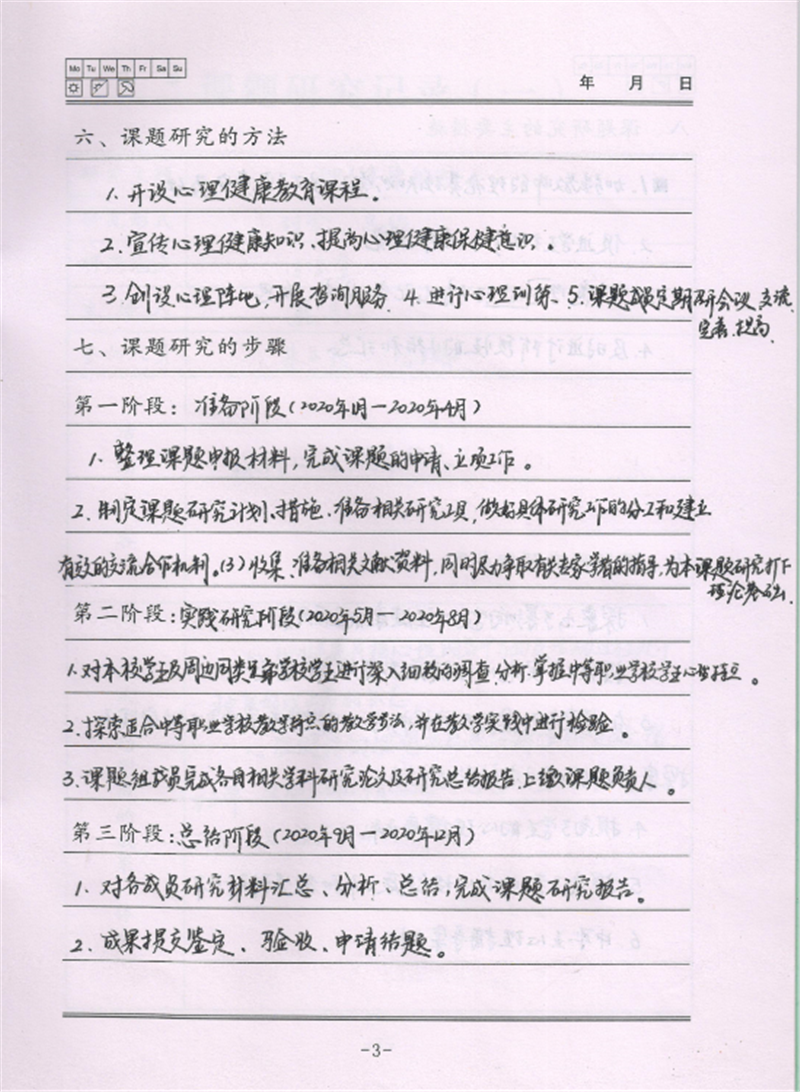 Mo Tu We Th Fr Sa Su
年 月 日
六、课题研究的方法
1. 开设心理健康教育课程。
2. 宣传心理健康知识、提高心理健康保健意识。
3. 创设心理阵地、开展咨询服务. 4. 进行心理训练、5. 课题成员定期研会议、交流、
完善、提高.
七、课题研究的步骤
第一阶段：准备阶段（2020年1月—2020年4月）
1. 整理课题申报材料，完成课题的申请、立项工作。
2. 制定课题研究计划、措施、准备相关研究工具，做好具体研究工作的分工和建立
有效的交流合作机制。(3) 收集、准备相关文献资料，同时尽力争取有关专家学者的指导，为本课题研究打下
理论基础.
第二阶段：实践研究阶段（2020年5月—2020年8月）
1. 对本校学生及周边同类学校学生进行深入细致的调查、分析.掌握中等职业学校学生心特点。
2. 探索适合中等职业学校教学特点的教学方法，并在教学实践中进行检验。
3. 课题组成员完成各自相关学科研究论文及研究总结报告.上缴课题负责人。
第三阶段：总结阶段（2020年9月—2020年12月）
1. 对各成员研究材料汇总、分析、总结，完成课题研究报告。
2. 成果提交鉴定、验收、申请结题。
-3-